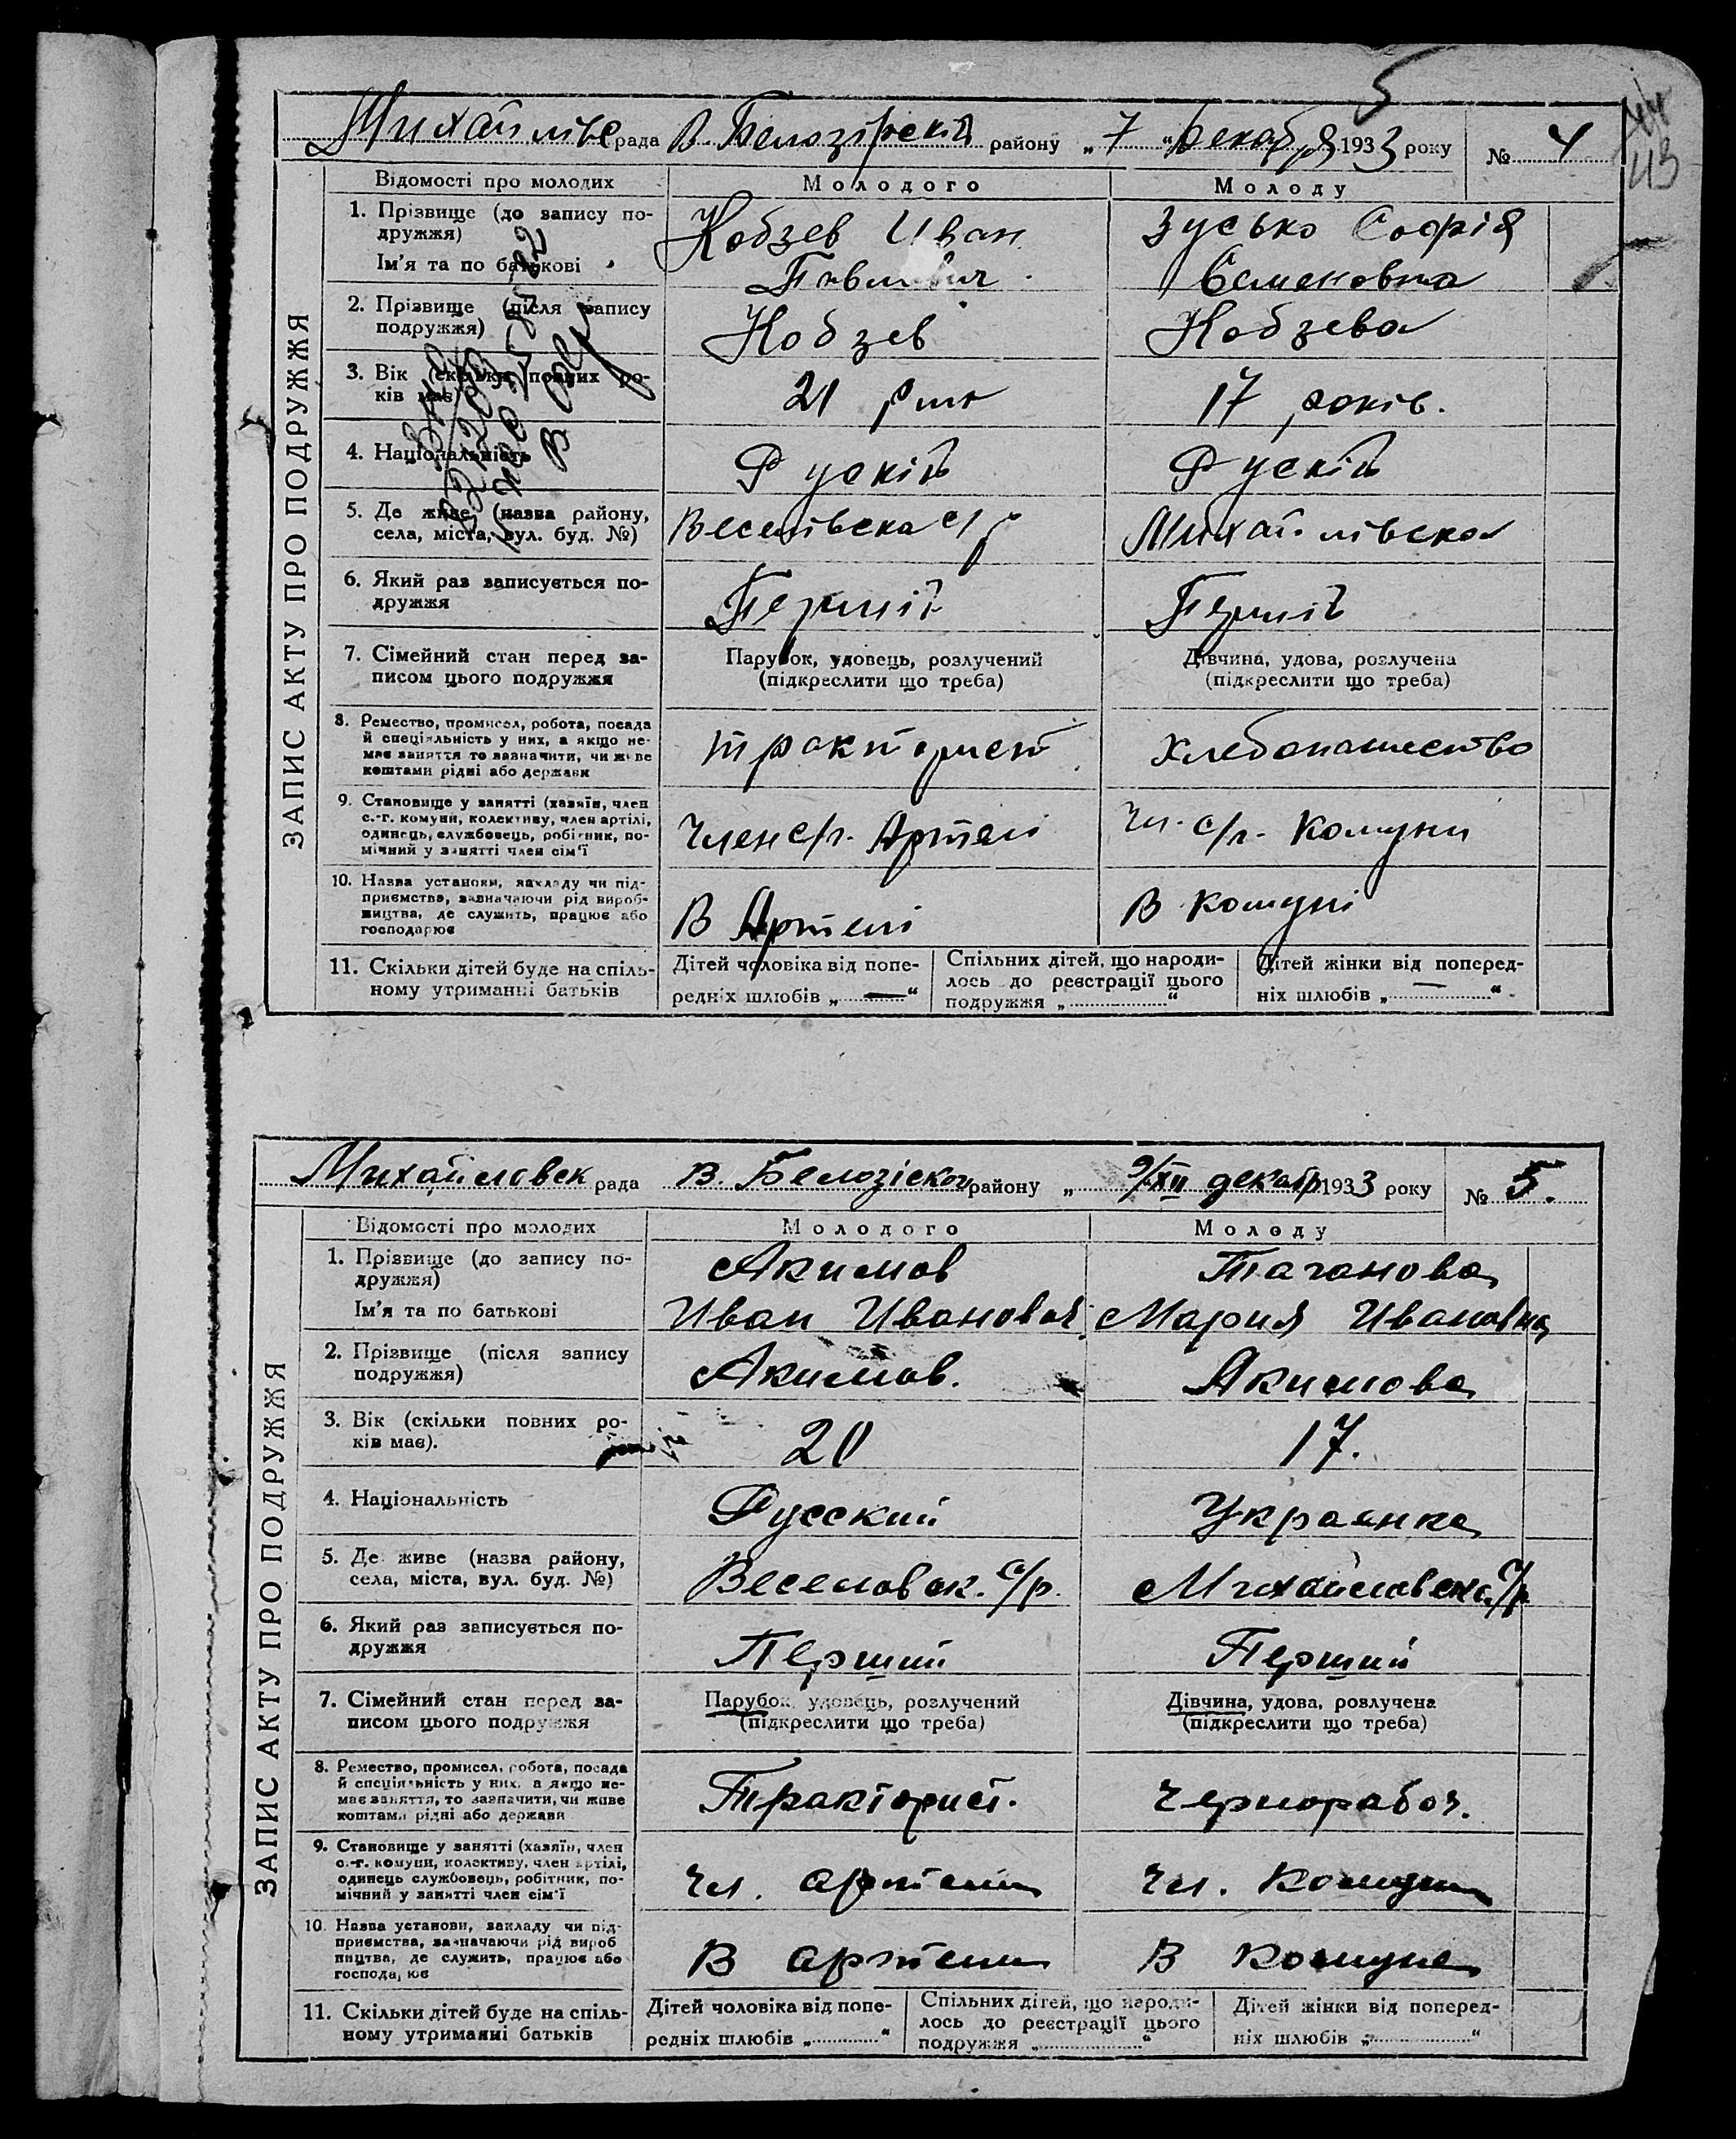 5
44
43
Михайлівс рада В. Белозірскій району „ 7 “ декабря 1933 року № 4
ЗАПИС АКТУ ПРО ПОДРУЖЖЯ
Відомості про молодих
Молодого
Молоду
1. Прізвище (до запису по-
дружжя)
Ім'я та по батькові
Кобзев Иван
Павлович
Зусько Софія
Семеновна
2. Прізвище (після запису
подружжя)
Кобзев
Кобзева
3. Вік (скільки повних ро-
ків має)
21
17 років.
4. Національність
Рускій
Рускій
5. Де живе (назва району,
села, міста, вул. буд. №)
Веселівска с/р
Михайлівска
6. Який раз записується по-
дружжя
Перший
Перший
7. Сімейний стан перед за-
писом цього подружжя
Парубок, удовець, розлучений
(підкреслити що треба)
Дівчина, удова, розлучена
(підкреслити що треба)
8. Ремество, промисел, робота, посада
й спеціяльність у них, а якщо не-
має заняття то зазначити, чи живе
коштами рідні або держави
тракторист
Хлебопашество
9. Становище у занятті (хазяїн, член
с.-г. комуни, колективу, член артілі,
одинець, службовець, робітник, по-
мічний у занятті член сім'ї
Член с/г. Артелі
Чл. с/г. Комуни
10. Назва установи, закладу чи під-
приємства, зазначаючи рід вироб-
ництва, де служить, працює або
господарює
В Артелі
В комуні
11. Скільки дітей буде на спіль-
ному утриманні батьків
Дітей чоловіка від попе-
редніх шлюбів „ — “
Спільних дітей, що народи-
лось до реєстрації цього
подружжя „ “
Дітей жінки від поперед-
ніх шлюбів „ — “
Михайловск рада В. Белозіског району „ 9/XII декабр 1933 року № 5.
ЗАПИС АКТУ ПРО ПОДРУЖЖЯ
Відомості про молодих
Молодого
Молоду
1. Прізвище (до запису по-
дружжя)
Ім'я та по батькові
Акимов
Иван Иванович
Таганова
Мария Ивановна
2. Прізвище (після запису
подружжя)
Акимов.
Акимова
3. Вік (скільки повних ро-
ків має).
20
17.
4. Національність
Русский
Украянка
5. Де живе (назва району,
села, міста, вул. буд. №)
Веселовск. с/р.
Михайловска с/р
6. Який раз записується по-
дружжя
Перший
Перший
7. Сімейний стан перед за-
писом цього подружжя
Парубок, удовець, розлучений
(підкреслити що треба)
Дівчина, удова, розлучена
(підкреслити що треба)
8. Ремество, промисел, робота, посада
й спеціяльність у них, а якщо не-
має заняття, то зазначити, чи живе
коштами рідні або держави
Тракторист.
Чернорабоч.
9. Становище у занятті (хазяїн, член
с.-г. комуни, колективу, член артілі,
одинець службовець, робітник, по-
мічний у занятті член сім'ї
Чл. артели
Чл. Комуни
10. Назва установи, закладу чи під-
приємства, зазначаючи рід вироб
ництва, де служить, працює або
господарює
В артели
В комуне
11. Скільки дітей буде на спіль-
ному утриманні батьків
Дітей чоловіка від попе-
редніх шлюбів „ “
Спільних дітей, що народи-
лось до реєстрації цього
подружжя „ “
Дітей жінки від поперед-
ніх шлюбів „ “